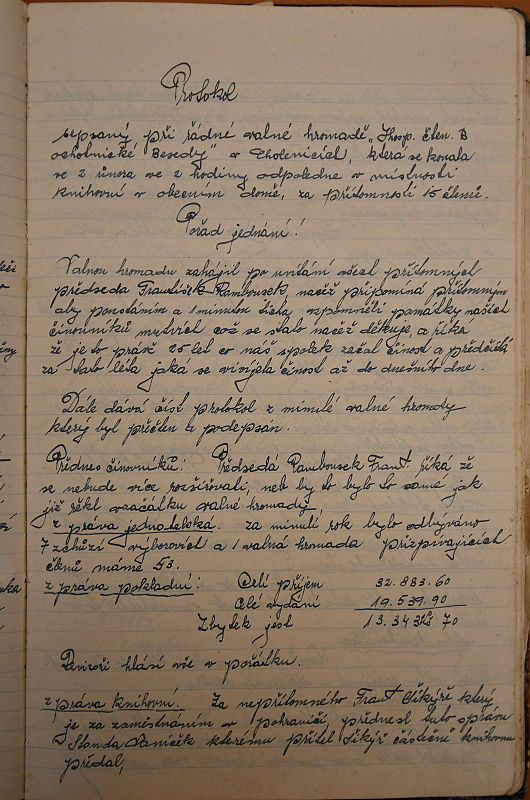 Protokol
sepsaný při řádné valné hromadě „Hosp. čten. B
ochotnické Besedy" v Cholenicích, která se konala
ve 2 února ve 2 hodiny odpoledne v místnosti
knihovní v obecním domě, za přítomnosti 15 členů.
Pořad jednání!
Valnou hromadu zahájil po uvítání všech přítomných
předseda František Rambousek, načež připomíná přítomným
aby povstáním a 1 minutou ticha vzpomněli památky našich
činovníků mrtvích což se stalo načež děkuje, a říká
že je to právě 25 let co náš spolek začal činost a předčítá
za tato léta jaká se vivíjela činost až do dnešního dne.
Dále dává číst protokol z minulé valné hromady
který byl přečten a podepsán.
Přednes činovníků: Předsedá Rambousek Frant říká že
se nebude více rozšiřovati, neb by to bylo to samé jak
již řekl vzačátku valné hromady,
z práva jednatelská. za minulí rok bylo odbýváno
7 schůzí výborovích a 1 valná hromada přizpívajících
členů máme 53.
z práva pokladní: Celí příjem 32.883.60
Celé vydání 19.539.90
Zbytek jest 13.343 70
Revizoři hlásí vše v pořátku.
z práva knihovní. Za nepřítomného Frant Sikýře který
je za zaměstnáním v pohraničí, přednesl tuto zprávu
Standa Vaníček kterému přítel Sikýř částečně knihovnu
předal,